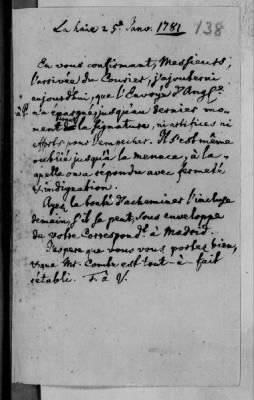 La haie 25e. Janv. 1781 138
En vous confirmant, Messieurs,
l'arrivée du Courier, j'ajouterai
aujourdhui, que l'Envoyé d'Angl.
n'a épargné, jusqu'au dernier mo-
ment de la signature, ni artifices ni
efforts pour l'empecher. Il s'est même
oublié jusqu'à la menace, à la-
quelle on a répondu avec fermeté
& indignation.
Ayez la bonté d'acheminer l'incluse
demain, s'il se peut, sous enveloppe
de votre correspondt. à Madrid.
J'espere que vous vous portez bien,
& que Mr. est tout-à-fait
rétabli. T. à V.